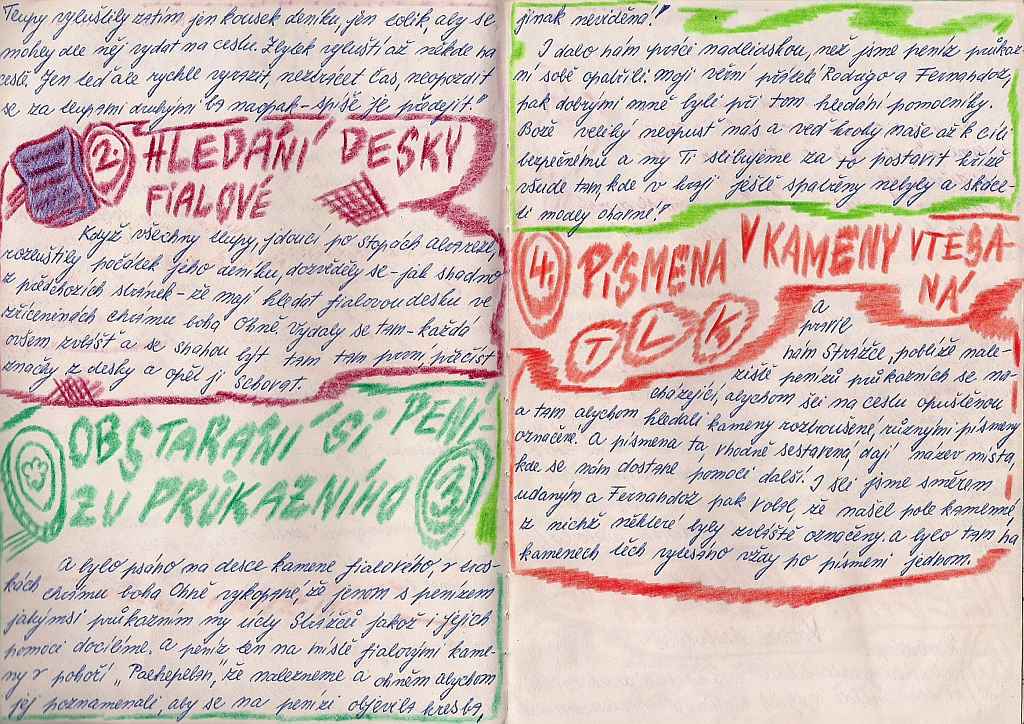 Tlupy vyluštily zatím jen kousek deníku, jen tolik, aby se
mohly dle něj vydat na cestu. Zbytek vyluští až někde na
cestě. Jen teď ale rychle vyrazit, neztrácet čas, neopozdit
se za tlupami druhými ba naopak - spíše je předejít."
2. HLEDÁNÍ DESKY
FIALOVÉ
Když všechny tlupy, jdoucí po stopách
rozluštily počátek jeho deníku, dozvěděly se - jak snadno
z předchozích stránek - že mají hledat fialovou desku ve
zříceninách chrámu boha Ohně. Vydaly se tam - každá
ovšem zvlášť a se snahou být tam tam první, přečíst
značky z desky a opět ji schovat.
OBSTARÁNÍ SI PENÍ-
ZU PRŮKAZNÍHO 3.
A bylo psáno na desce kamene fialového, v tros-
kách chrámu boha Ohně vykopané, že jenom s penízem
jakýmsi průkazním my úcty Strážců jakož i jejich
pomoci docílíme. a peníz ten na místě fialovými kame-
ny v pohoří „Pachepelan", že nalezneme a ohněm abychom
jej poznamenali, aby se na penízi objevila kresba,
jinak neviděná!"
I dalo nám práci nadlidskou, než jsme peníz průkaz-
ní sobě opatřili. Moji věrní přátelé Rodrigo a Fernandoz,
pak dobrými mně byli při tom hledání pomocníky.
Bože veliký neopusť nás a veď kroky naše až k cíli
bezpečnému a my Ti slibujeme za to postavit kříže
všude tam, kde v kraji ještě spatřeny nebyly a skáce-
ti modly ohavné!"
4. PÍSMENA V KAMENY VTESA-
NÁ
T L K
a
pravil
nám Strážce, poblíže nale-
ziště penízů průkazních se na-
cházející, abychom šli na cestu opuštěnou
a tam abychom hledali kameny rozbroušené, různými písmeny
označené. A písmena ta vhodně sestavena, dají název místa,
kde se nám dostane pomoci další. I šli jsme směrem
udaným a Fernandoz pak volal, že našel pole kamenné
z nichž některé byly zvláště označeny a bylo tam na
kamenech těch vytesáno vždy po písmeni jednom.